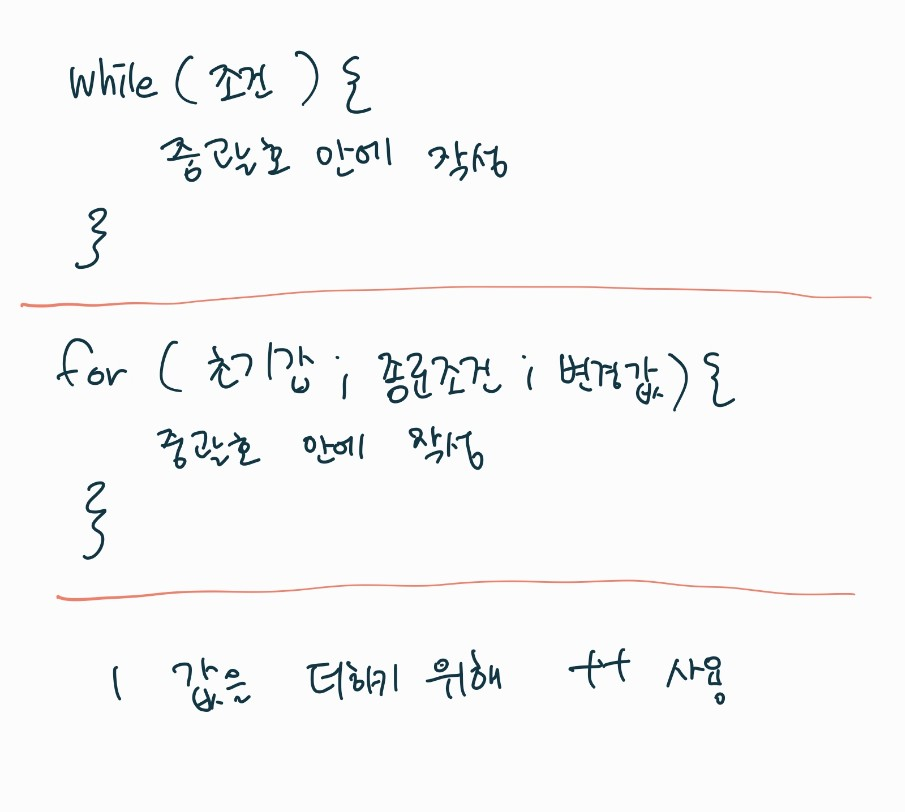 while ( 조건 ) {
중괄호 안에 작성
}
for ( 초기값 ; 종료조건 ; 변경값 ) {
중괄호 안에 작성
}
1 값을 더하기 위해 ++ 사용